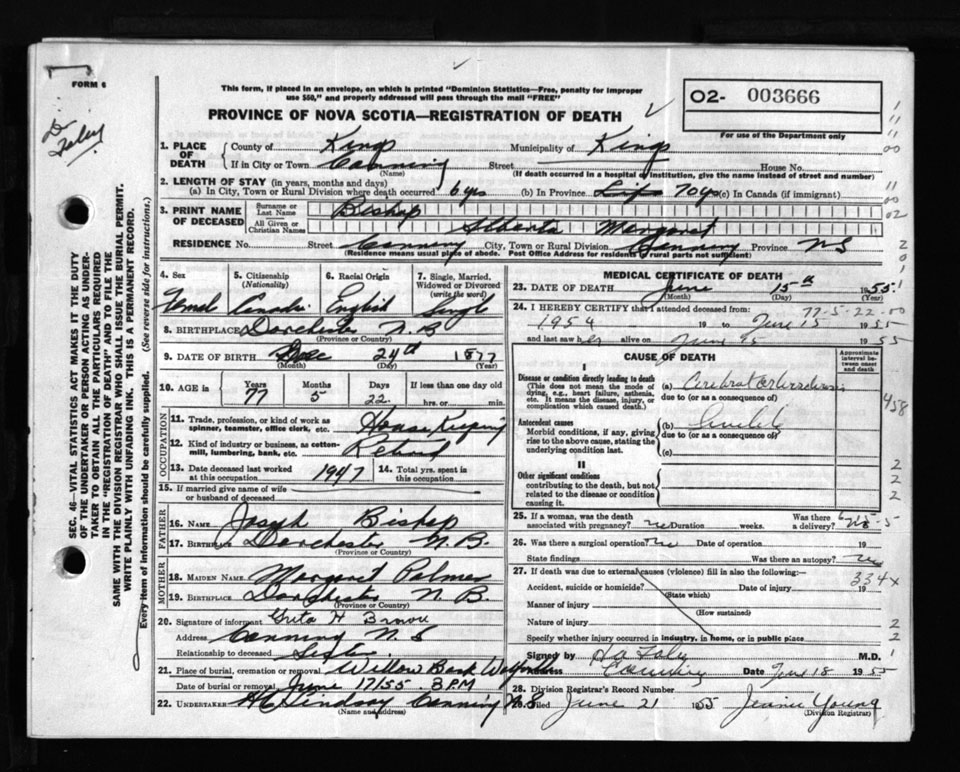 FORM 6
This form, if placed in an envelope, on which is printed "Dominion Statistics—Free, penalty for improper
use $50," and properly addressed will pass through the mail "FREE"
PROVINCE OF NOVA SCOTIA—REGISTRATION OF DEATH
O2- 003666
For use of the Department only
1. PLACE OF DEATH
County of Kings Municipality of Kings
If in City or Town Canning Street House No.
(Name) (If death occurred in a hospital or institution, give the name instead of street and number)
2. LENGTH OF STAY (in years, months and days)
(a) In City, Town or Rural Division where death occurred 6 yrs (b) In Province Life 70 yrs (c) In Canada (if immigrant)
3. PRINT NAME OF DECEASED
Surname or Last Name Bishop
All Given or Christian Names Alberta Margaret
RESIDENCE No. Street Canning City, Town or Rural Division Canning Province N S
(Residence means usual place of abode. Post Office Address for residents of rural parts not sufficient)
4. Sex
5. Citizenship (Nationality)
6. Racial Origin English
7. Single, Married, Widowed or Divorced (write the word) Single
8. BIRTHPLACE Dorchester N.B
(Province or Country)
9. DATE OF BIRTH Dec 24th 1877
(Month) (Day) (Year)
10. AGE in Years 77 Months 5 Days 22 If less than one day old
hrs. or min.
OCCUPATION
11. Trade, profession, or kind of work as spinner, teamster, office clerk, etc. House Keeping
12. Kind of industry or business, as cotton-mill, lumbering, bank, etc. Retired
13. Date deceased last worked at this occupation 1947
14. Total yrs. spent in this occupation
15. If married give name of wife or husband of deceased
FATHER
16. NAME Joseph Bishop
17. BIRTHPLACE Dorchester N.B.
(Province or Country)
MOTHER
18. MAIDEN NAME Margaret Palmer
19. BIRTHPLACE Dorchester N B.
(Province or Country)
20. Signature of informant Greta H
Address Canning N. S
Relationship to deceased Sister
21. Place of burial, cremation or removal Willow Bank Wolfville
Date of burial or removal June 17/55 3 PM
22. UNDERTAKER H C Lindsay Canning N.S
(Name and address)
MEDICAL CERTIFICATE OF DEATH
23. DATE OF DEATH June 15th 1955
(Month) (Day) (Year)
77-5-22-00
24. I HEREBY CERTIFY that I attended deceased from:
1954 19 to June 15 1955
and last saw her alive on June 15 1955
CAUSE OF DEATH
Approximate interval between onset and death
I
Disease or condition directly leading to death
(This does not mean the mode of dying, e.g., heart failure, asthenia, etc. It means the disease, injury, or complication which caused death.)
(a) Cerebral
due to (or as a consequence of)
Antecedent causes
Morbid conditions, if any, giving rise to the above cause, stating the underlying condition last.
(b)
due to (or as a consequence of)
(c)
II
Other significant conditions
contributing to the death, but not related to the disease or condition causing it.
25. If a woman, was the death associated with pregnancy? no Duration weeks. Was there a delivery?
26. Was there a surgical operation? no Date of operation 19
State findings Was there an autopsy? no
27. If death was due to external causes (violence) fill in also the following:—
334x
Accident, suicide or homicide? Date of injury 19
(State which)
Manner of injury
(How sustained)
Nature of injury
Specify whether injury occurred in industry, in home, or in public place
Signed by M.D.
Address Canning Date June 18 1955
28. Division Registrar's Record Number
Filed June 21 1955 Jennie Young
(Division Registrar)
SEC. 46—VITAL STATISTICS ACT MAKES IT THE DUTY
OF THE UNDERTAKER OR PERSON ACTING AS UNDER-
TAKER TO OBTAIN ALL THE PARTICULARS REQUIRED
IN THE "REGISTRATION OF DEATH" AND TO FILE THE
SAME WITH THE DIVISION REGISTRAR WHO SHALL ISSUE THE BURIAL PERMIT.
WRITE PLAINLY WITH UNFADING INK. THIS IS A PERMANENT RECORD.
Every item of information should be carefully supplied. (See reverse side for instructions.)